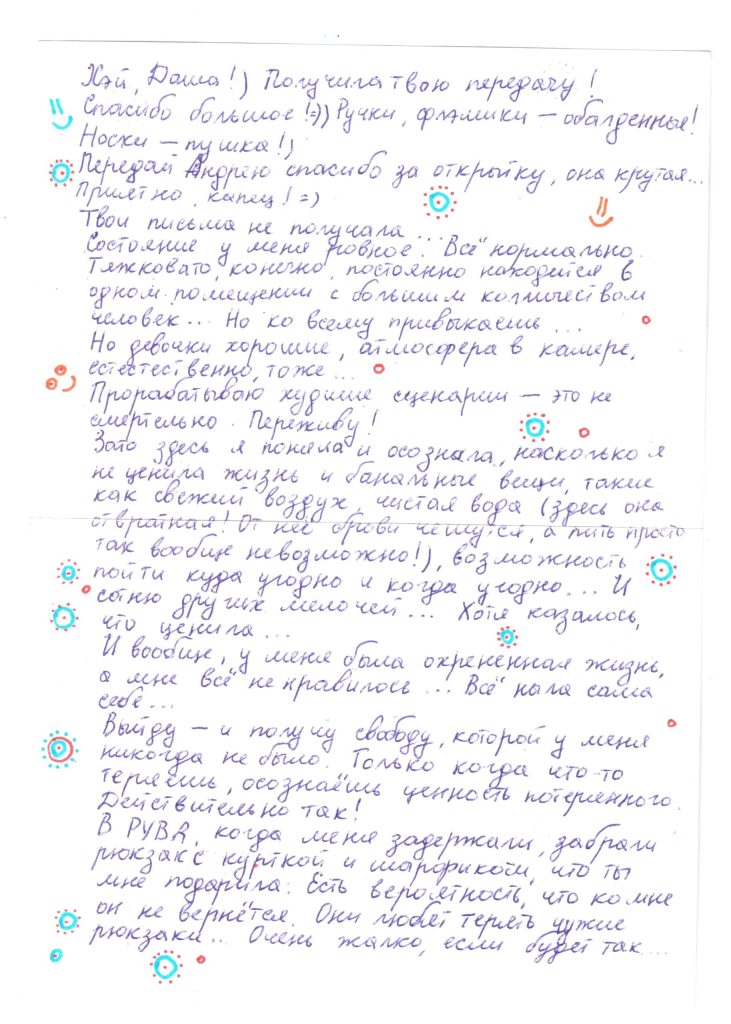 Хэй, Даша!) Получила твою передачу!
Спасибо большое!=)) Ручки, фламики – обалденные!
Носки – пушка!)
Передай Андрею спасибо за открытку, она крутая...
Приятно, капец! =)
Твои письма не получала...
Состояние у меня ровное... Всё нормально.
Тяжковато, конечно, постоянно находится в
одном помещении с большим количеством
человек... Но ко всему привыкаешь...
Но девочки хорошие, атмосфера в камере,
естестественно, тоже...
Прорабатываю худшие сценарии – это не
смертельно. Переживу!
Зато здесь я поняла и осознала, насколько я
не ценила жизнь и банальные вещи, такие
как свежий воздух, чистая вода (здесь она
отвратная! От неё брови чешутся, а пить просто
так вообще невозможно!), возможность
пойти куда угодно и когда угодно... И
сотню других мелочей... Хотя казалось,
что ценила...
И вообще, у меня была охрененная жизнь,
а мне всё не нравилось... Всё ныла сама
себе...
Выйду – и получу свободу, которой у меня
никогда не было. Только когда что-то
теряешь, осознаёшь ценность потерянного.
Действительно так!
В РУВД, когда меня задержали, забрали
рюкзак с курткой и шарфиком, что ты
мне подарила. Есть вероятность, что ко мне
он не вернётся. Они любят терять чужие
рюкзаки... Очень жалко, если будет так...